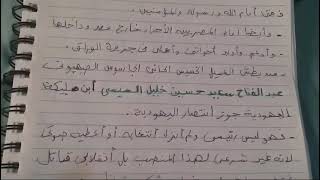 فدعى أمام الله ورسوله والمؤمنين
- وأرضا أمام المصريين الأحرار خارج مصر وداخلها
- وأدعم وأؤيد أخواتي وأهلى فى جزيرة الوراق
- ضد بطش العميل الخسيس الخائن الجاسوس الصهيوني
عبد الفتاح سعيد حسين خليل السيسى ابن مليكة
اليهودية جوز انتصار اليهودية
- فهو ليس رئيسى ولم أنزل انتخابه أو أعطيه صوتى
لأنه غير شرعى لهذا المنصب بل انقلابى قاتل